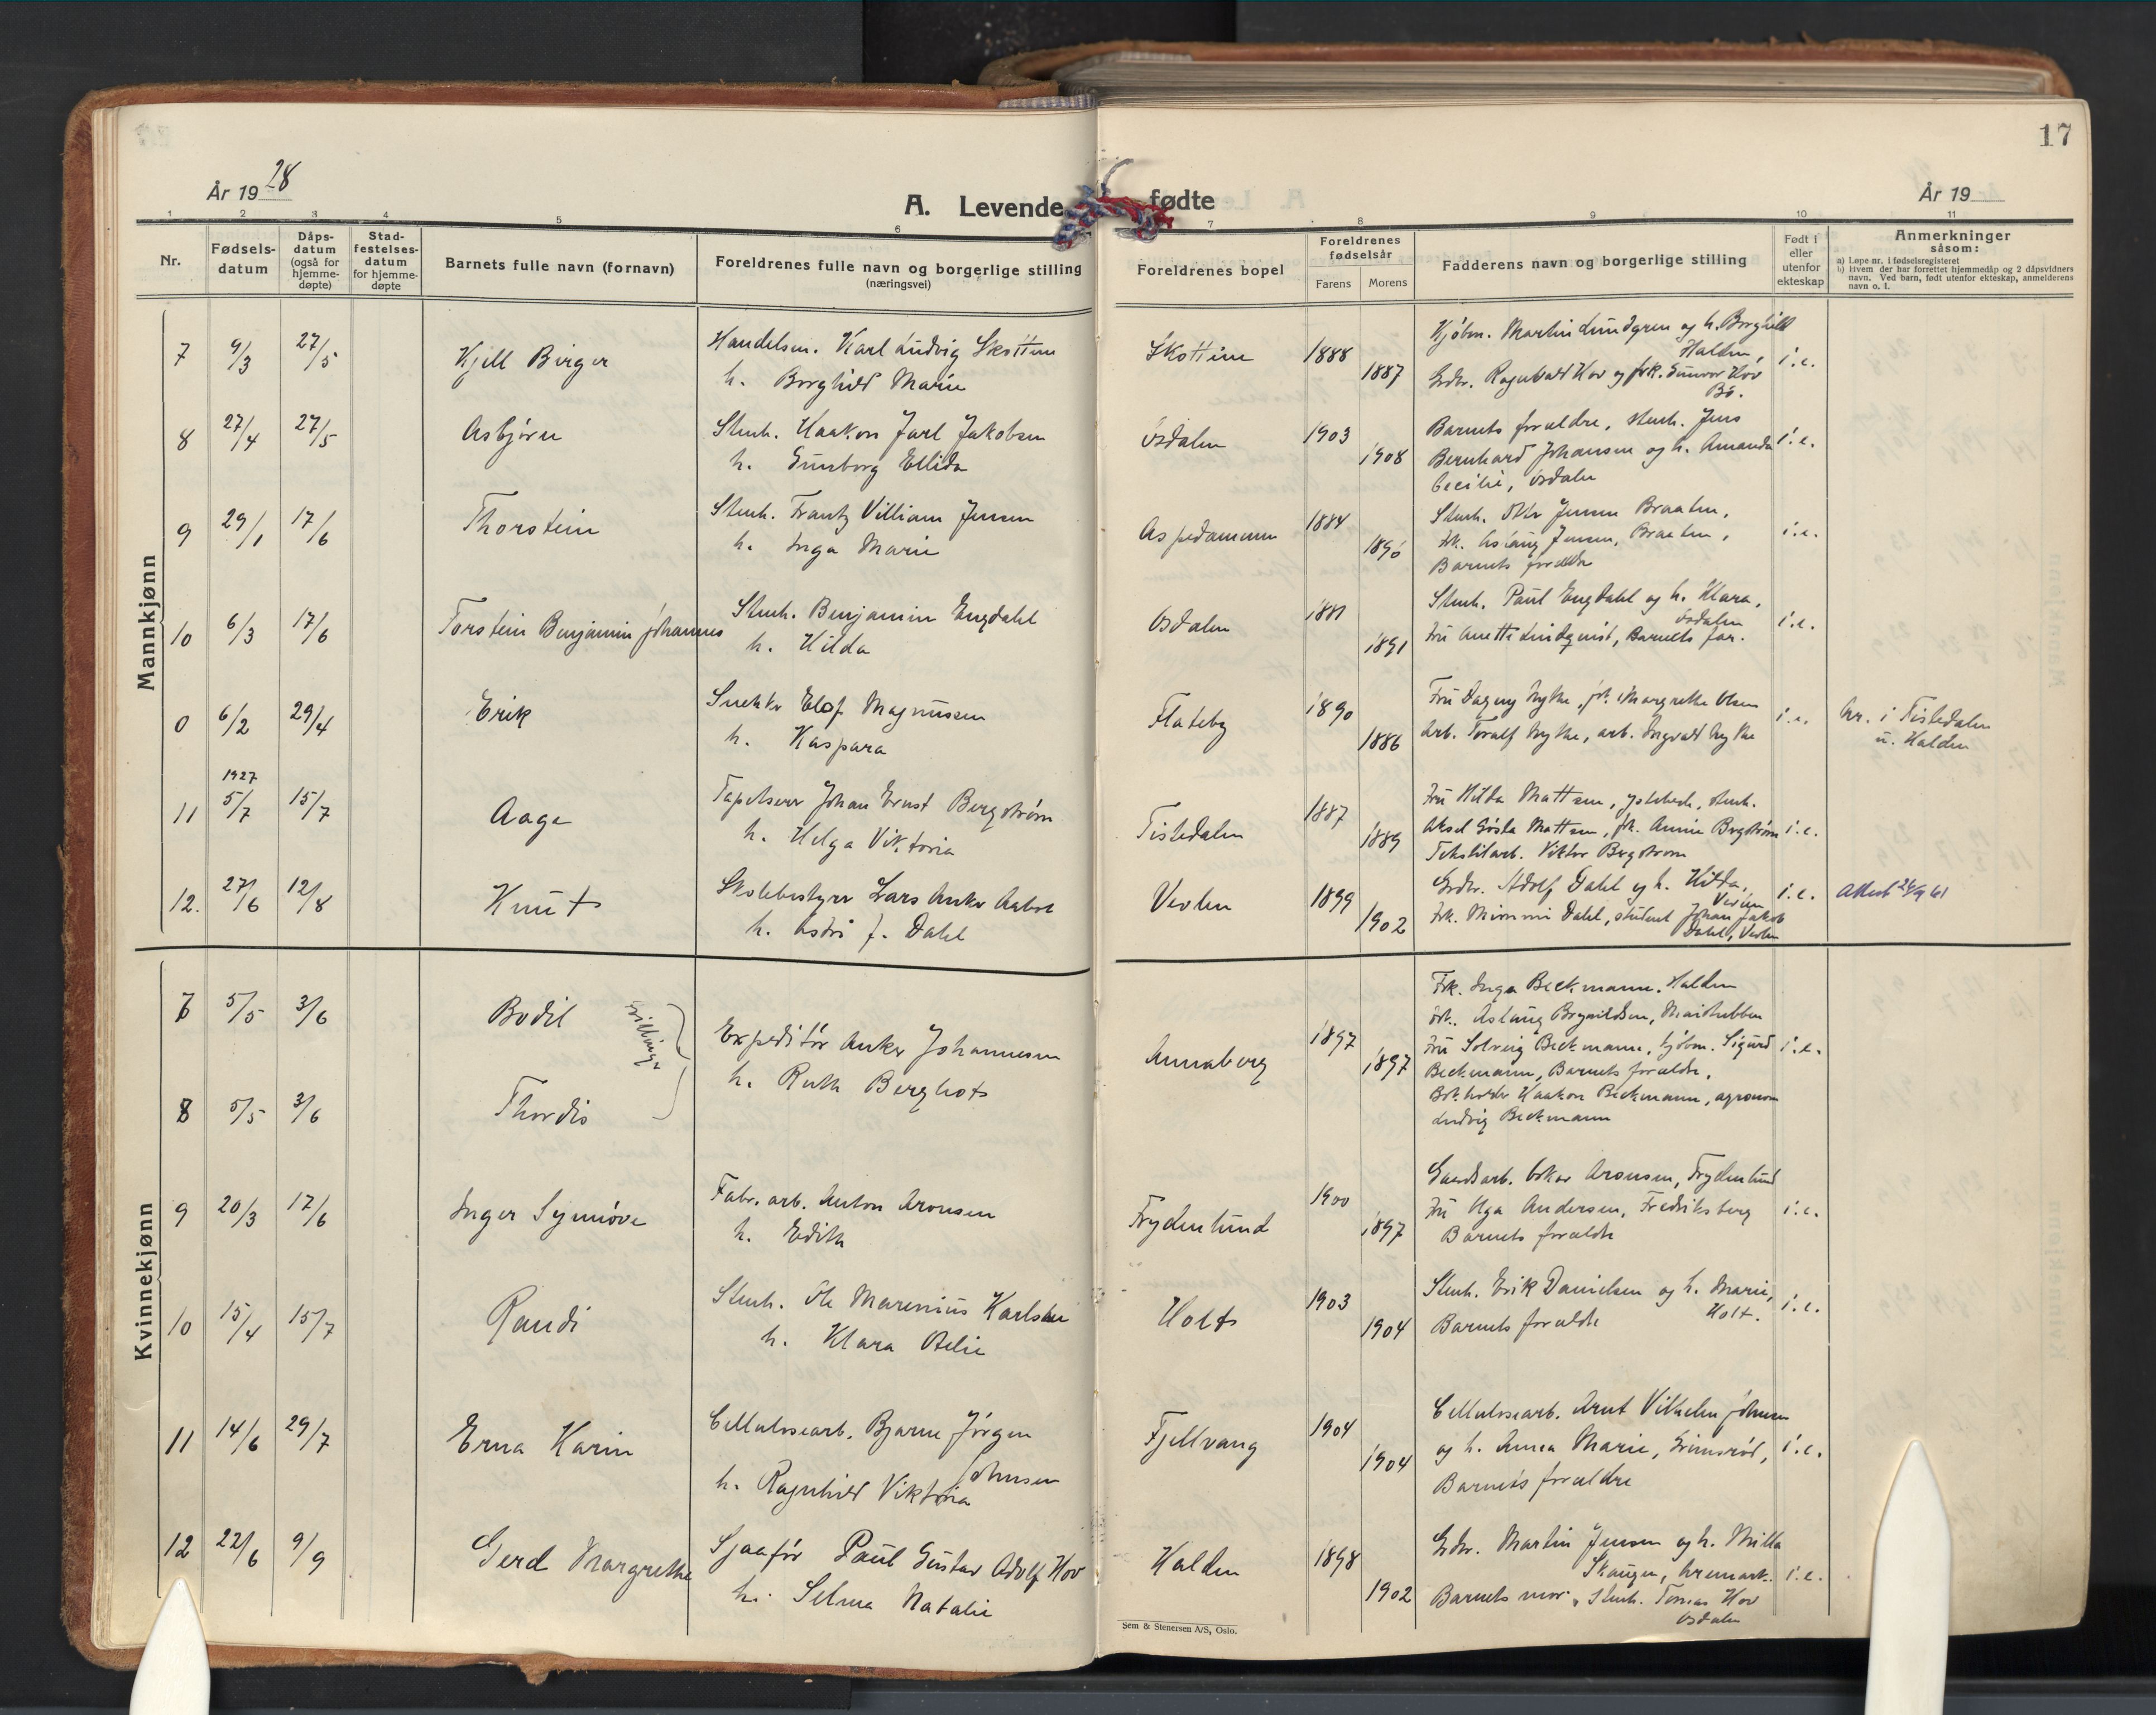 17
År 1928
A. Levende fødte
År 19
1 2 3 4 5 6 7 8 9 10 11
Nr.
Fødsels-
datum
Dåps-
datum
(også for
hjemme-
døpte)
Stad-
festelses-
datum
for hjemme-
døpte
Barnets fulle navn (fornavn)
Foreldrenes fulle navn og borgerlige stilling
(næringsvei)
Foreldrenes bopel
Foreldrenes
fødselsår
Farens Morens
Fadderens navn og borgerlige stilling
Født i
eller
utenfor
ekteskap
Anmerkninger
såsom:
a) Løpe nr. i fødselsregisteret
b) Hvem der har forrettet hjemmedåp og 2 dåpsvidners
navn. Ved barn, født utenfor ekteskap, anmelderens
navn o. l.
Mannkjønn
7 9/3 27/5 Kjell Birger
Handelsm. Karl Ludvig Skotten
h. Borghild Marie
1888
1887
Kjøbm. Martin Lundgren og h. Borghild
Halden,
Grdbr. Ragnvald Hov og frk. Gunvor Hov
Bø.
i.e.
8 27/4 27/5 Asbjørn
Stenh. Haakon Jarl Jakobsen
h. Gunborg Ellida
Osdalen
1903
1908
Barnets forældre, stenh. Jens
Bernhard Johansen og h. Amanda
Cecilie, Osdalen
i.e.
9 29/1 17/6 Thorstein
Stenh. Frantz Villiam Jensen
h. Inga Marie
Aspedammen
1884
1890
Stenh. Otto Jensen Braaten,
frk. Aslaug Jensen, Braaten,
Barnets forældre
i.e.
10 6/3 17/6 Torstein Benjamin Johannes
Stenh. Benjamin Engdahl
h. Hilda
Osdalen
1881
1891
Stenh. Paul Engdahl og h. Klara,
Osdalen
Fru Anette Lindqvist, Barnets far.
i.e.
0 6/2 29/4 Erik
Snekker Elof Magnussen
h. Kaspara
Flateby
1890
1886
Fru Dagny Nythe, frk. Margrethe Olsen
Arb. Toralf Nythe, arb. Ingvald Nythe
i.e.
nr. i Tistedalen
u. Halden
11 1927
5/7 15/7 Aage
Tapetserer Johan Ernst Bergstrøm
h. Helga Viktoria
Tistedalen
1887
1889
Fru Hilda Mattsen, Ystehede, stenh.
Aksel Gösta Mattsen, frk. Annie Bergstrøm
Tekstilarb. Viktor Bergstrøm
i.e.
12. 27/6 12/8 Knut
Skolebestyrer Lars Anker
h. Astri J. Dahl
Vevlen
1899
1902
Grdbr. Adolf Dahl og h. Hilda,
Vevlen
frk. Mimmi Dahl, student Johan Jakob
Dahl, Vevlen
i.e.
Attest 26/9 61
Kvinnekjønn
7 5/5 3/6 Bodil
Tvillinger
8 5/5 3/6 Thordis
Expeditør Anker Johannesen
h. Ruth Berghot
Annaberg
1897
1897
Frk. Inga Beckmann, Halden
frk. Aslaug Brynildsen,
Fru Solveig Beckmann, kjøbm. Sigurd
Beckmann, Barnets forældre,
Bokholder Haakon Beckmann, agronom
Ludvig Beckmann
i.e.
9 20/3 17/6 Inger Synnøve
Fabr. arb. Anton Aronsen
h. Edith
Frydenlund
1900
1897
Gaardsarb. Oskar Aronsen, Frydenlund
Fru Olga Andersen, Fredriksberg
Barnets forældre
i.e.
10 15/4 15/7 Randi
Stenh. Ole Marenius Karlsen
h. Klara Otelie
Holt
1903
1904
Stenh. Erik Danielsen og h. Marie,
Barnets forældre Holt.
i.e.
11 14/6 29/7 Erna Karin
Cellulosearb. Bjarne Jörgen
Johnsen
h. Ragnhild Viktoria
Fjellvang
1904
1904
Cellulosearb. Arnt Vilhelm Johnsen
og h. Anna Marie, Grimsrød,
Barnets forældre
i.e.
12 22/6 9/9 Gerd Margrethe
Sjaafør Paul Gustav Adolf Hov
h. Selma Natalie
Halden
1898
1902
Grdbr. Martin Jensen og h. Milla
Skaugen, Aremark.
Barnets mor, Stenh. Tomas Hov
Osdalen
i.e.
Sem & Stenersen A/S, Oslo.